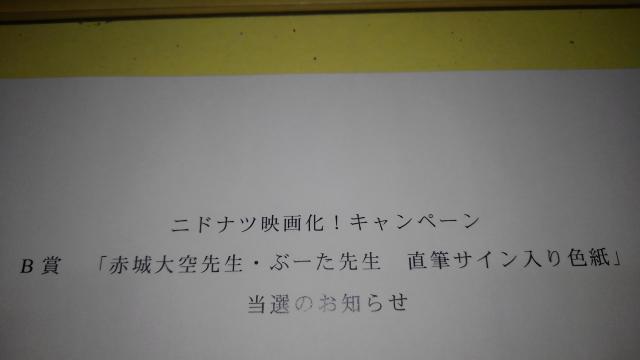 ニドナツ映画化！キャンペーン
B賞　「赤城大空先生・ぶーた先生　直筆サイン入り色紙」
当選のお知らせ